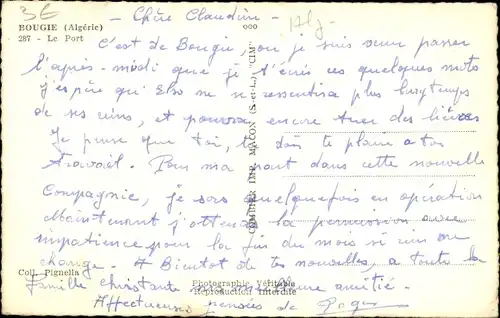 3E
- Chère Claudine -
Alg
BOUGIE (Algérie)
287 - Le Port
C'est de Bougie, où je suis venu passer
l'après-midi que je t'écris ces quelques mots
J'espère qu'Elso ne se ressentira plus longtemps
de ses reins, et pourra encore tuer des lièvres
Je pense que toi, tu dois te plaire à ton
travail. Pour ma part dans cette nouvelle
Compagnie, je sors quelquefois en opération
Maintenant j'attends la permission avec
impatience pour la fin du mois si rien ne
change. A Bientôt de tes nouvelles, à toute la
famille
amitié.
Affectueuses pensées de Roger
Coll. Pignella
Photographie Véritable
Reproduction Interdite
COMBIER IMP. MACON (S.-et-L.) "CIM"